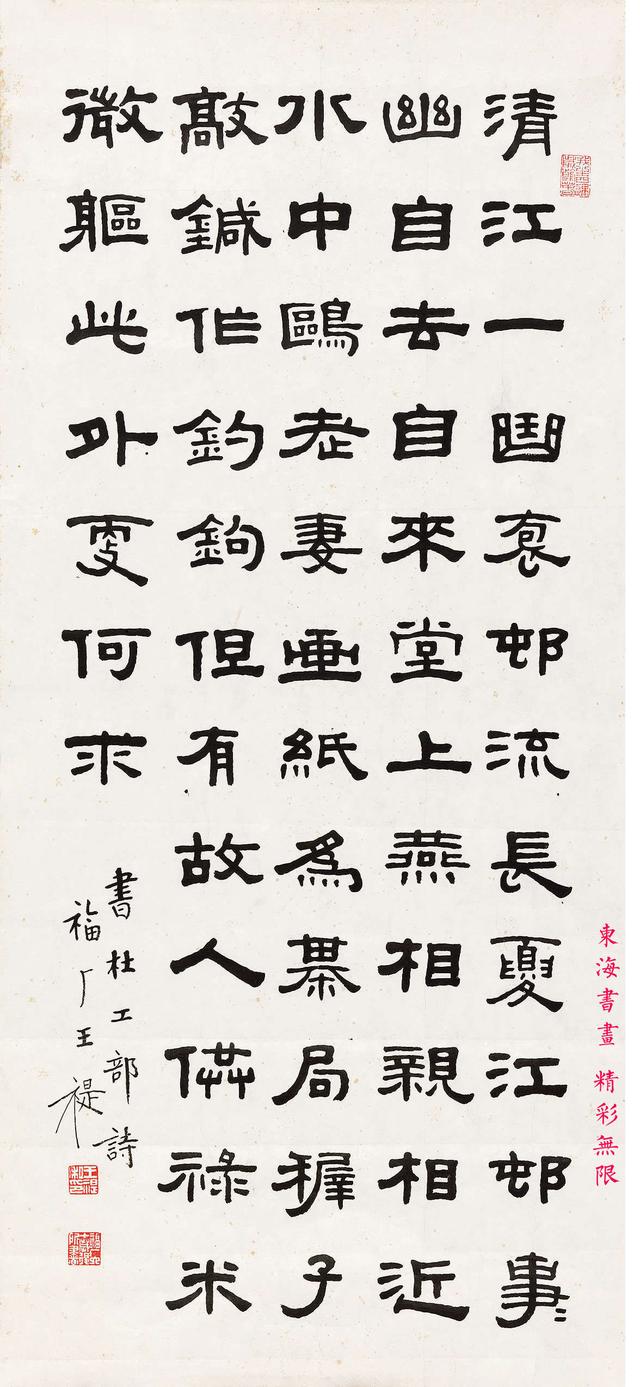 清江一曲袌邨流長夏江邨事〻
幽自去自來堂上燕相親相近
水中鷗老妻画紙為棊局穉子
敲鍼作釣鉤但有故人供祿米
微軀此外更何求
書杜工部詩
福厂王禔
王禔私印
東海書畫 精彩無限